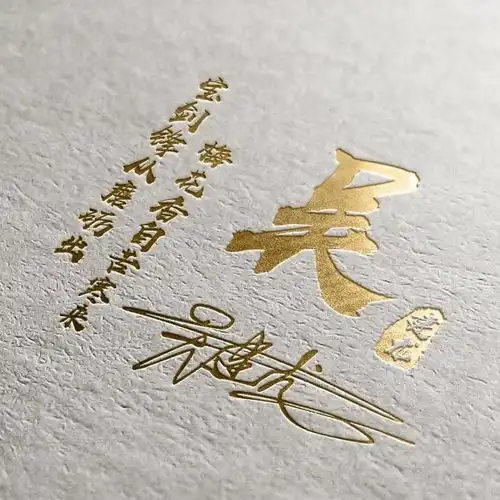 宝剑锋从磨砺出
梅花香自苦寒来
吴